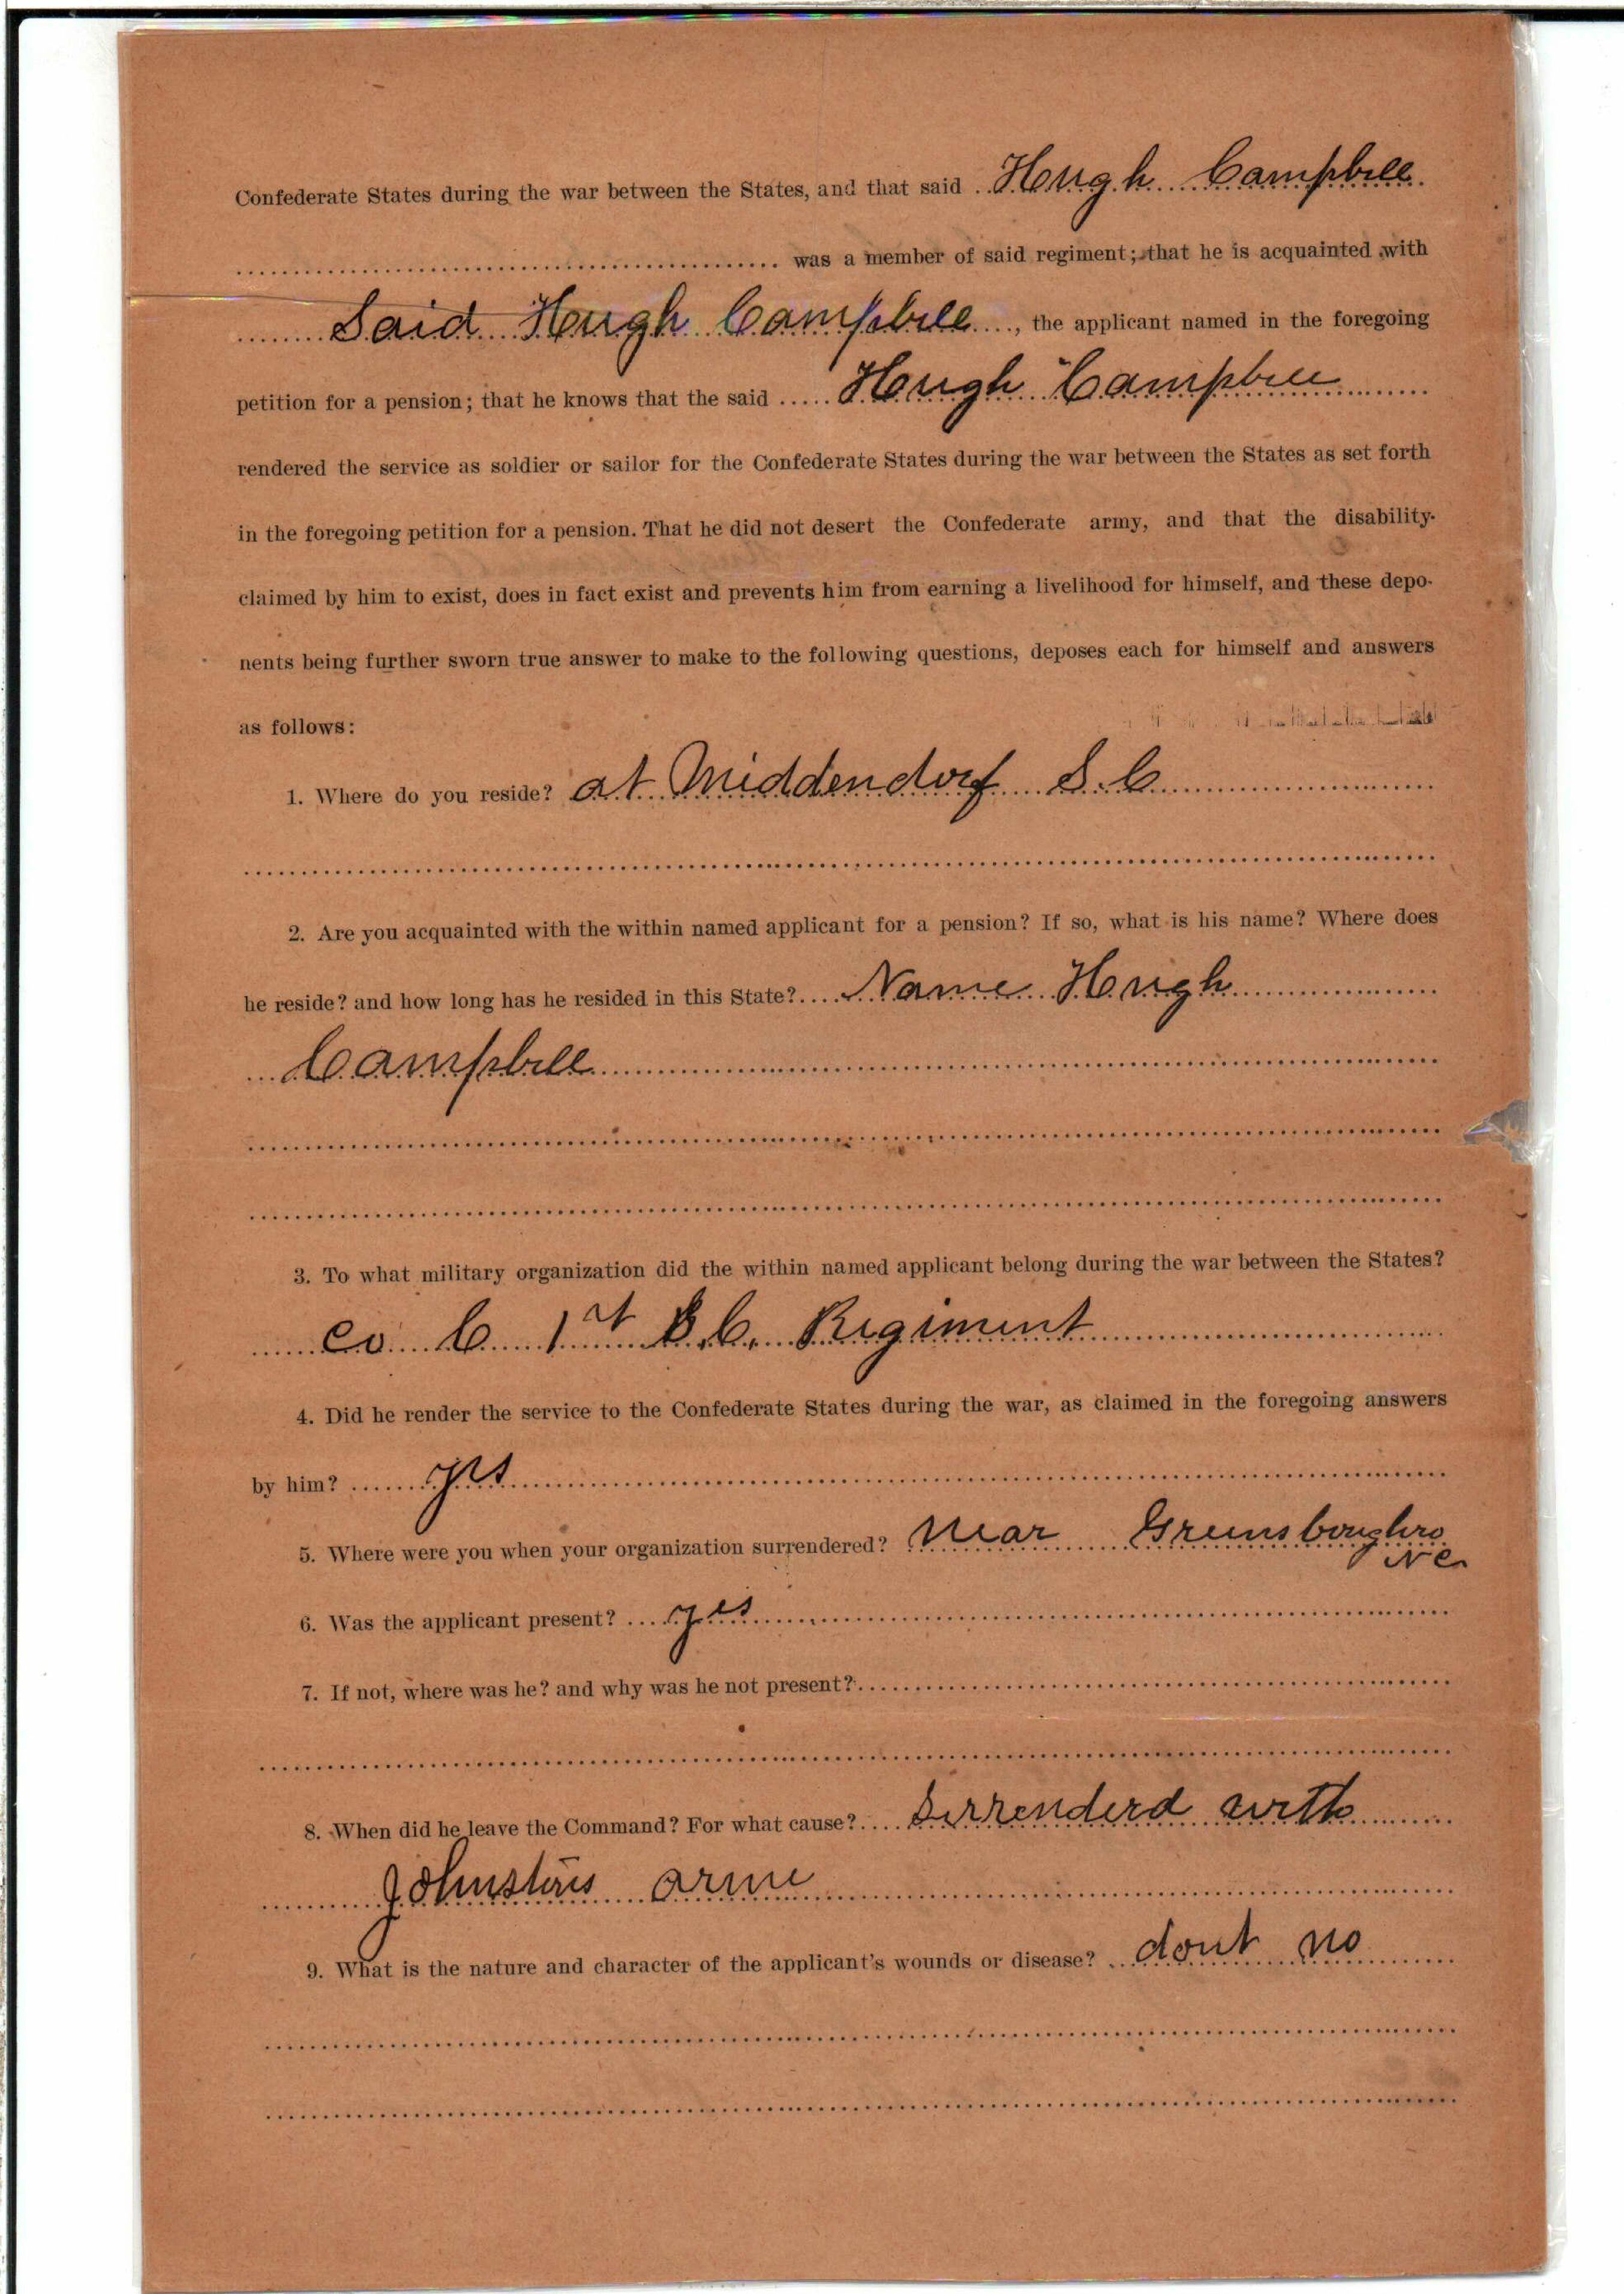 Confederate States during the war between the States, and that said Hough Campbell
was a member of said regiment; that he is acquainted with
Said Hough Campbell, the applicant named in the foregoing
petition for a pension; that he knows that the said Hough Campbell
rendered the service as soldier or sailor for the Confederate States during the war between the States as set forth
in the foregoing petition for a pension. That he did not desert the Confederate army, and that the disability
claimed by him to exist, does in fact exist and prevents him from earning a livelihood for himself, and these depo-
nents being further sworn true answer to make to the following questions, deposes each for himself and answers
as follows:
1. Where do you reside? at Middendorf S.C
2. Are you acquainted with the within named applicant for a pension? If so, what is his name? Where does
he reside? and how long has he resided in this State? Name Hough
Campbell
3. To what military organization did the within named applicant belong during the war between the States?
Co C 1st S.C. Regiment
4. Did he render the service to the Confederate States during the war, as claimed in the foregoing answers
by him? yes
5. Where were you when your organization surrendered? Near Greensboughro
NC
6. Was the applicant present? yes
7. If not, where was he? and why was he not present?
8. When did he leave the Command? For what cause? Serrenderd with
Johnstons arme
9. What is the nature and character of the applicant's wounds or disease? dont no